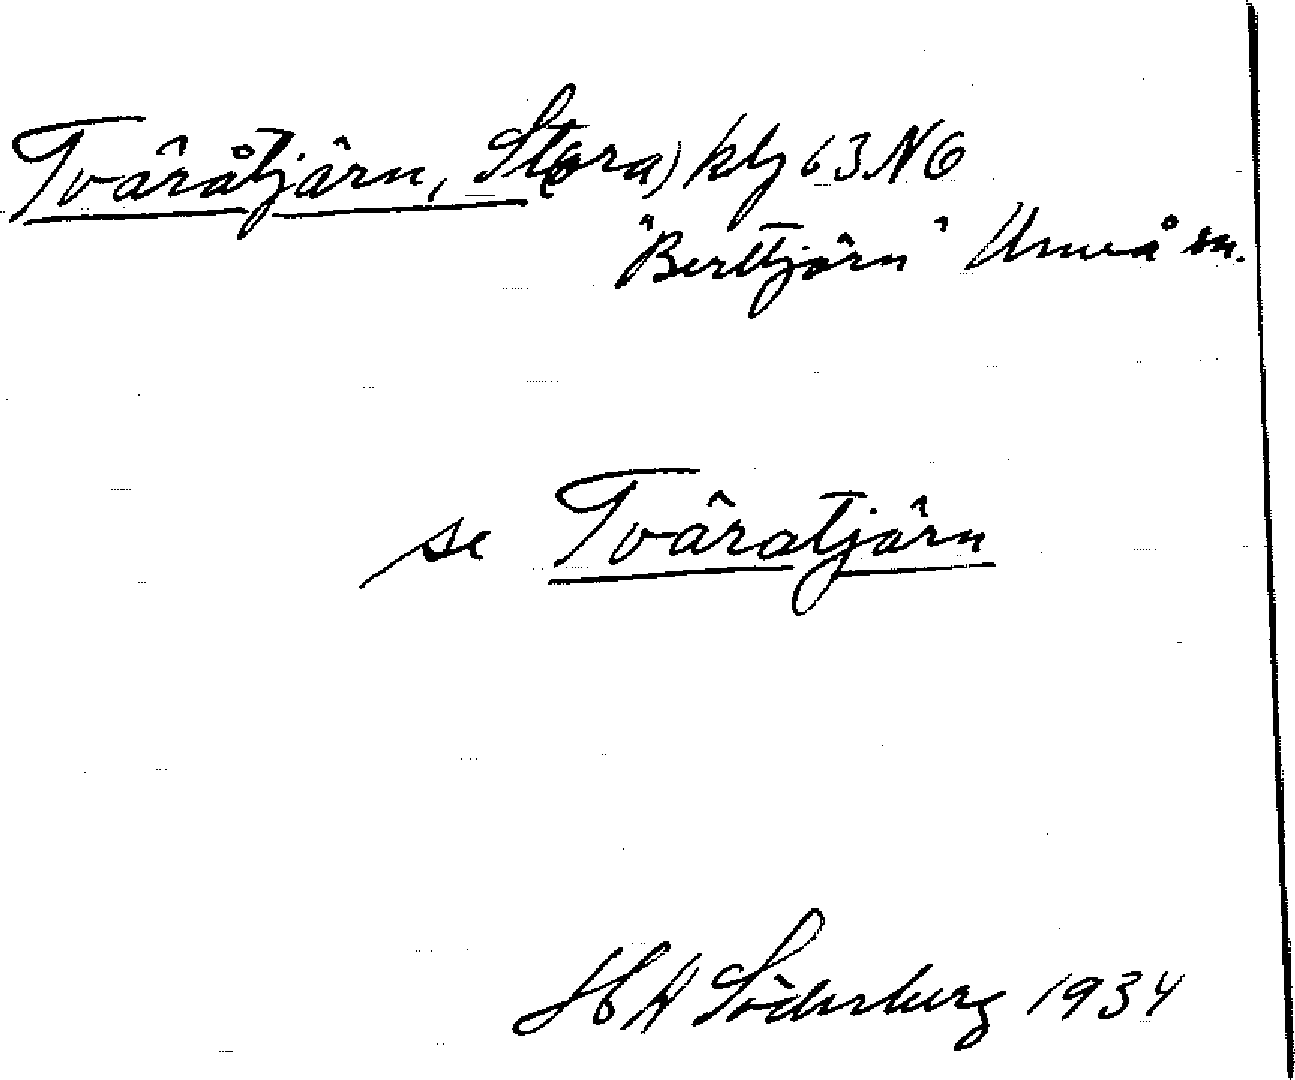 Tväråtjärn, St(ora) ktj 63 NO
"Berttjärn" Umeå sn.
se Tväratjärn
H A Söderberg 1934